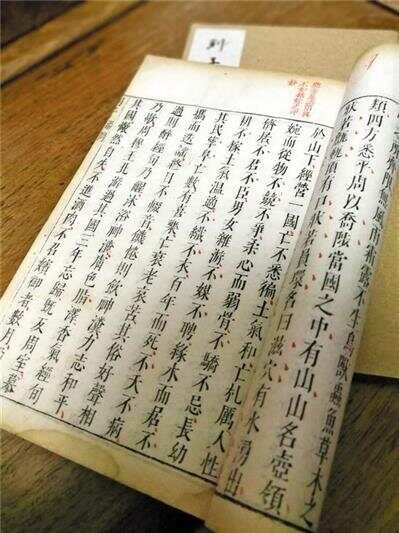 之所齊限無風雨霜露不生鳥獸蟲魚草木之
類四方悉平周以喬陟當國之中有山山名壺領
狀若甔甀頂有口狀若員環名曰滋穴有水湧出
於山下經營一國亡不悉徧土氣和亡札厲人性
婉而從物不競不爭柔心而弱骨不驕不忌長幼
儕居不君不臣男女雜游不媒不聘緣水而居不
耕不稼土氣溫適不織不衣百年而死不夭不病
其民孳阜亡數有喜樂亡衰老哀苦其俗好聲相
攜而迭謠終日不輟音饑惓則飲神瀵力志和平
過則醉經旬乃醒沐浴神瀵膚色脂澤香氣經旬
乃歇周穆王北遊過其國三年忘歸既反周室慕
其國惝然自失不進酒肉不召嬪御者數月
列